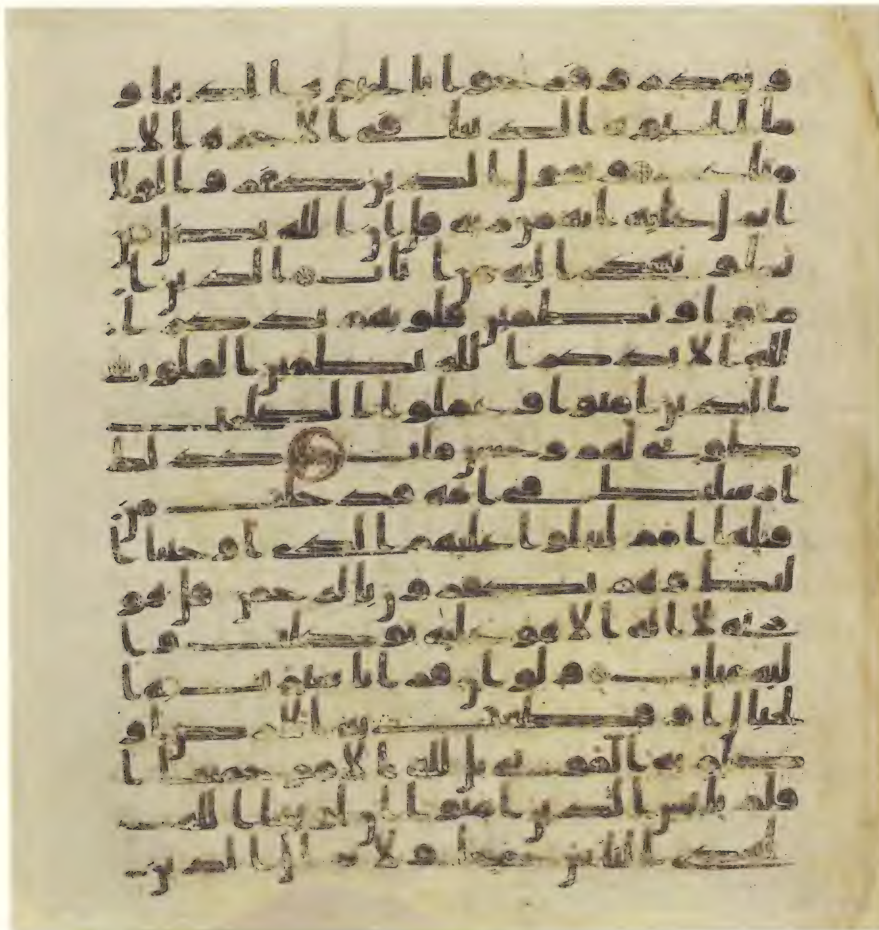 و يقدر وفرحوا بالحيوة الدنيا و
ما الحيوة الدنيا في الاخرة الا
متاع ويقول الذين كفروا لولا
انزل عليه اية من ربه قل ان الله يضل من
يشا ويهدي اليه من اناب الذين ا
منوا وتطمئن قلوبهم بذكر ا
لله الا بذكر الله تطمئن القلوب
الذين امنوا وعملوا الصلحت
طوبى لهم وحسن ماب كذلك
ارسلنك في امة قد خلت من
قبلها امم لتتلوا عليهم الذي اوحينا ا
ليك وهم يكفرون بالرحمن قل هو
ربي لا اله الا هو عليه توكلت وا
ليه متاب ولو ان قرانا سيرت به ا
لجبال او قطعت به الارض او
كلم به الموتى بل لله الامر جميعا ا
فلم يايس الذين امنوا ان لو يشا الله
لهدى الناس جميعا ولا يزال الذين